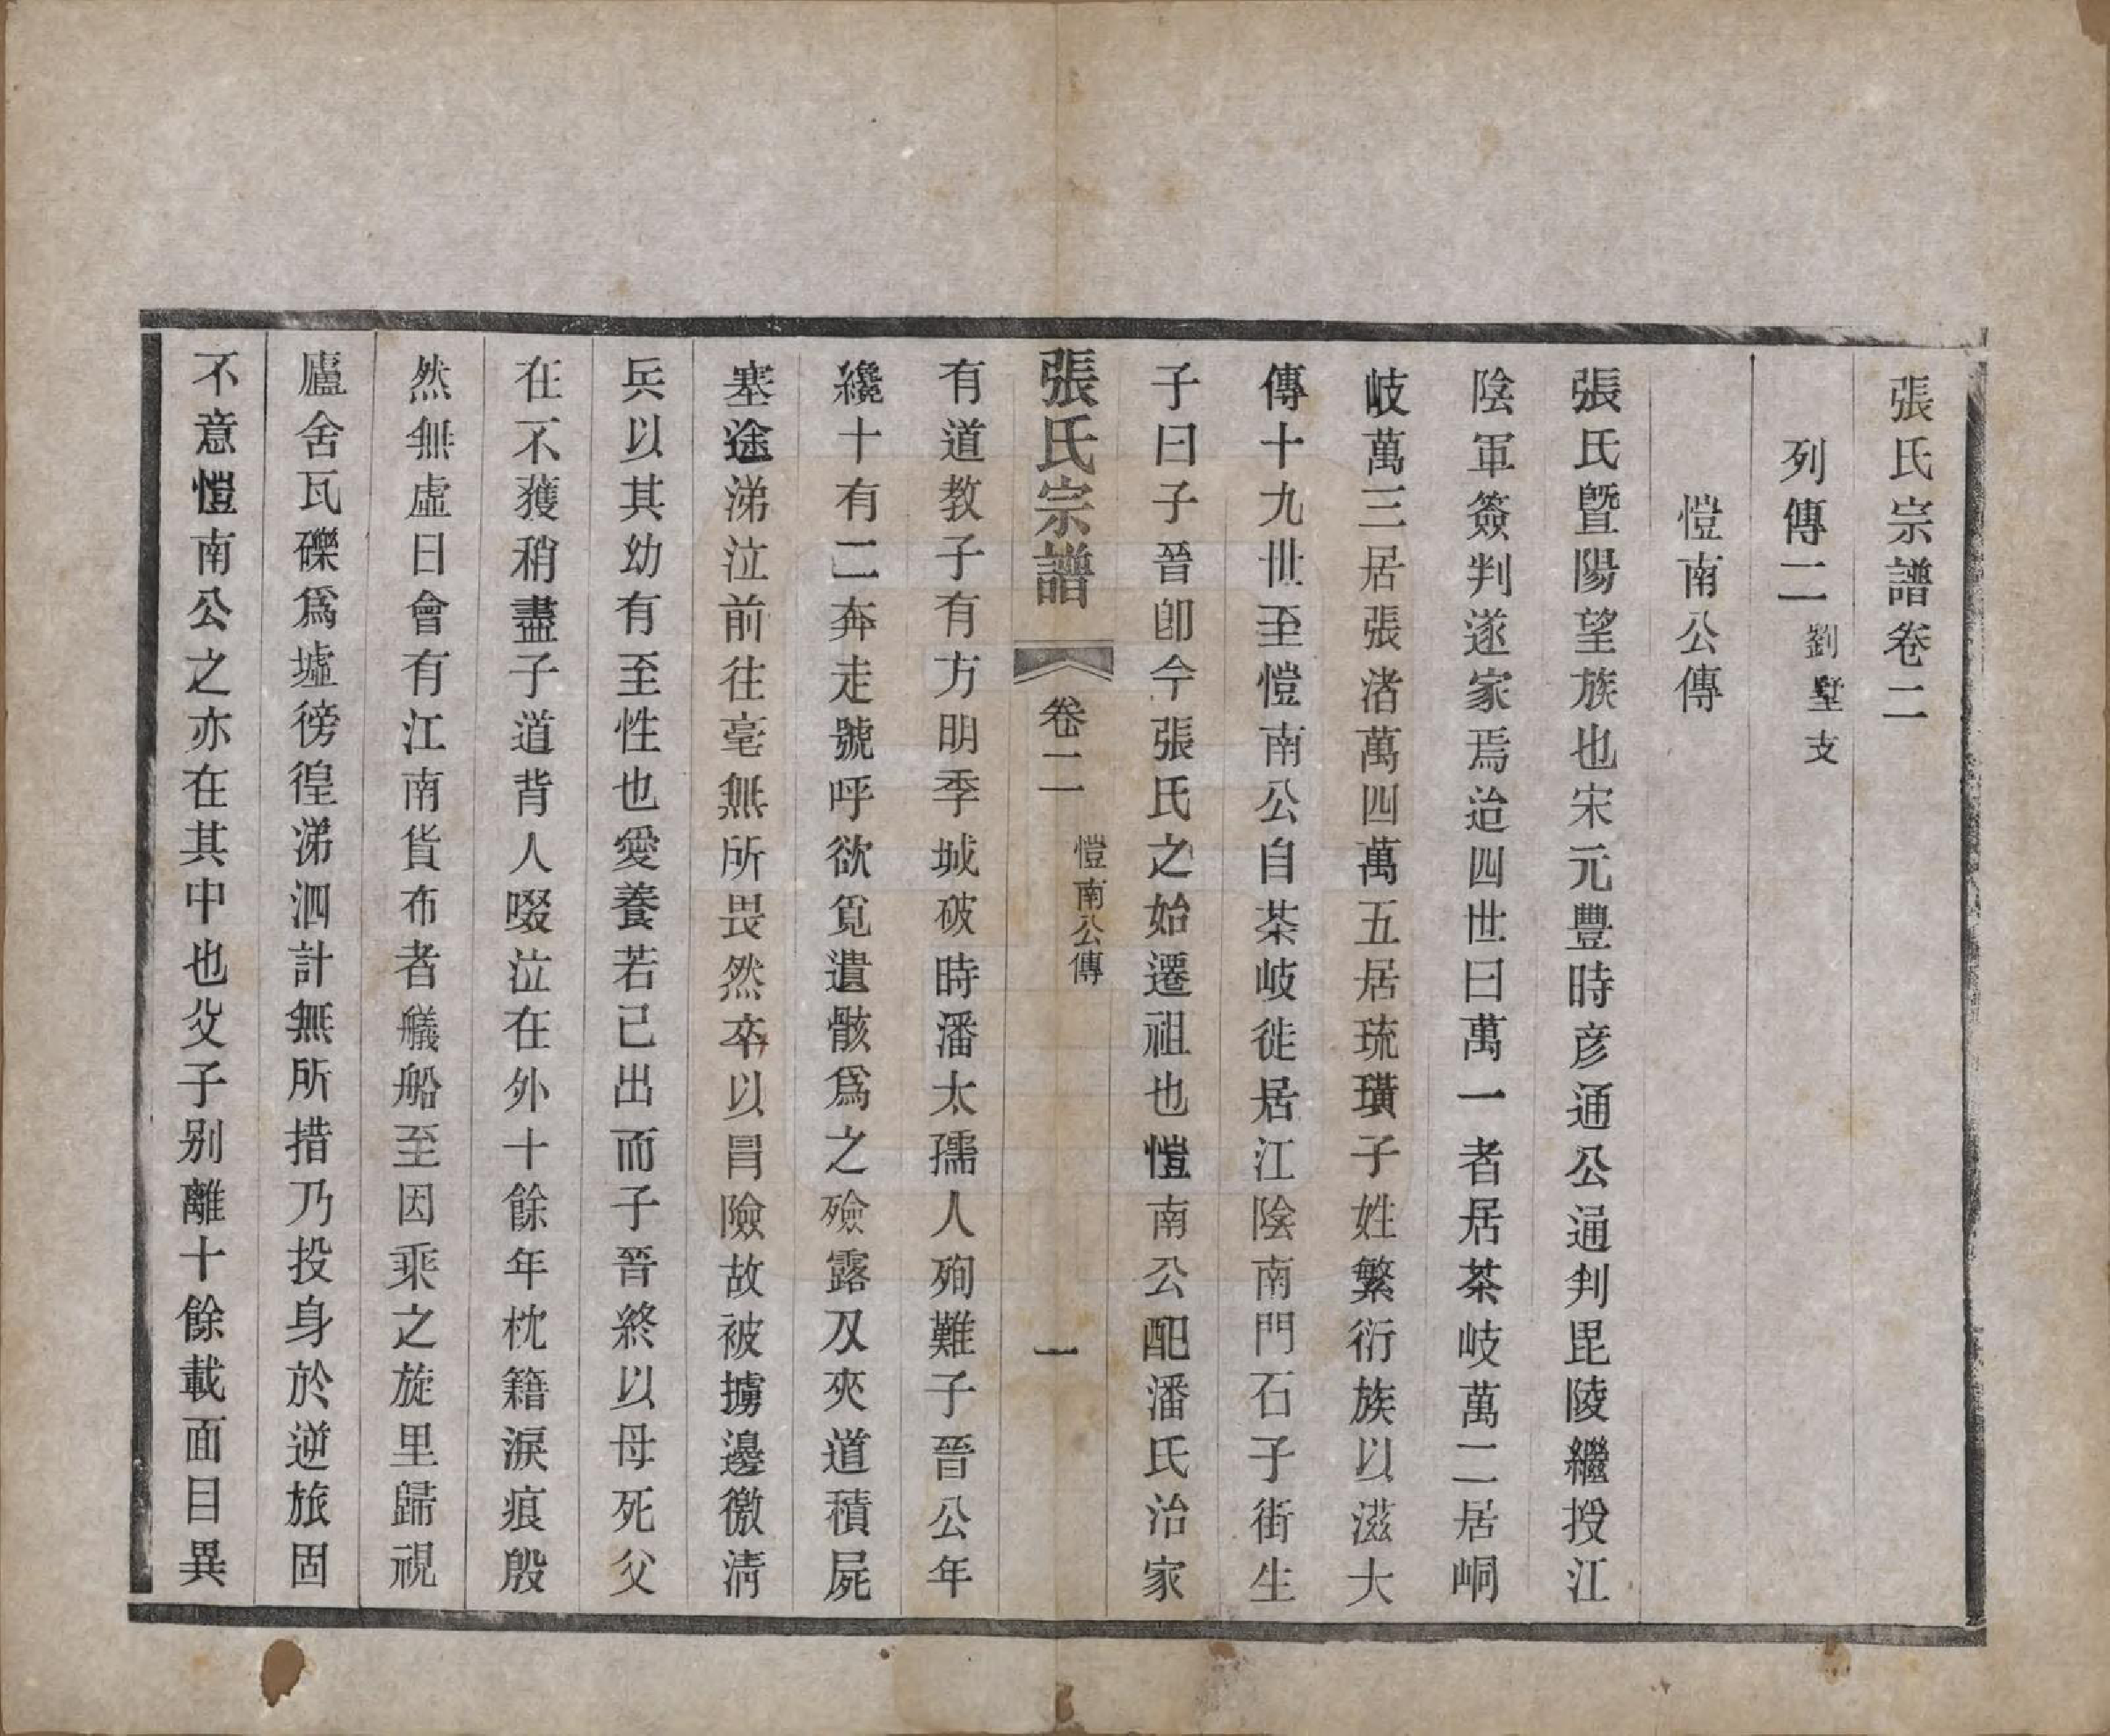 張氏宗譜卷二
列傳二劉墅支
愷南公傳
張氏暨陽望族也宋元豐時彦通公通判毘陵繼授江
陰軍簽判遂家焉迨四世曰萬一者居茶岐萬二居峒
岐萬三居張渚萬四萬五居琉璜子姓繁衍族以滋大
傳十九世至愷南公自茶岐徙居江陰南門石子街生
子曰子晉卽今張氏之始遷祖也愷南公配潘氏治家
張氏宗譜
卷二
愷南公傳
一
有道教子有方明季城破時潘太孺人殉難子晉公年
纔十有二奔走號呼欲覓遺骸爲之殮露及夾道積屍
塞途涕泣前往毫無所畏然卒以冒險故被擄邊徼淸
兵以其幼有至性也愛養若己出而子晉終以母死父
在不獲稍盡子道背人啜泣在外十餘年枕籍淚痕殷
然無虛日會有江南貨布者艤船至因乘之旋里歸視
廬舍瓦礫爲墟徬徨涕泗計無所措乃投身於逆旅固
不意愷南公之亦在其中也父子别離十餘載面目異